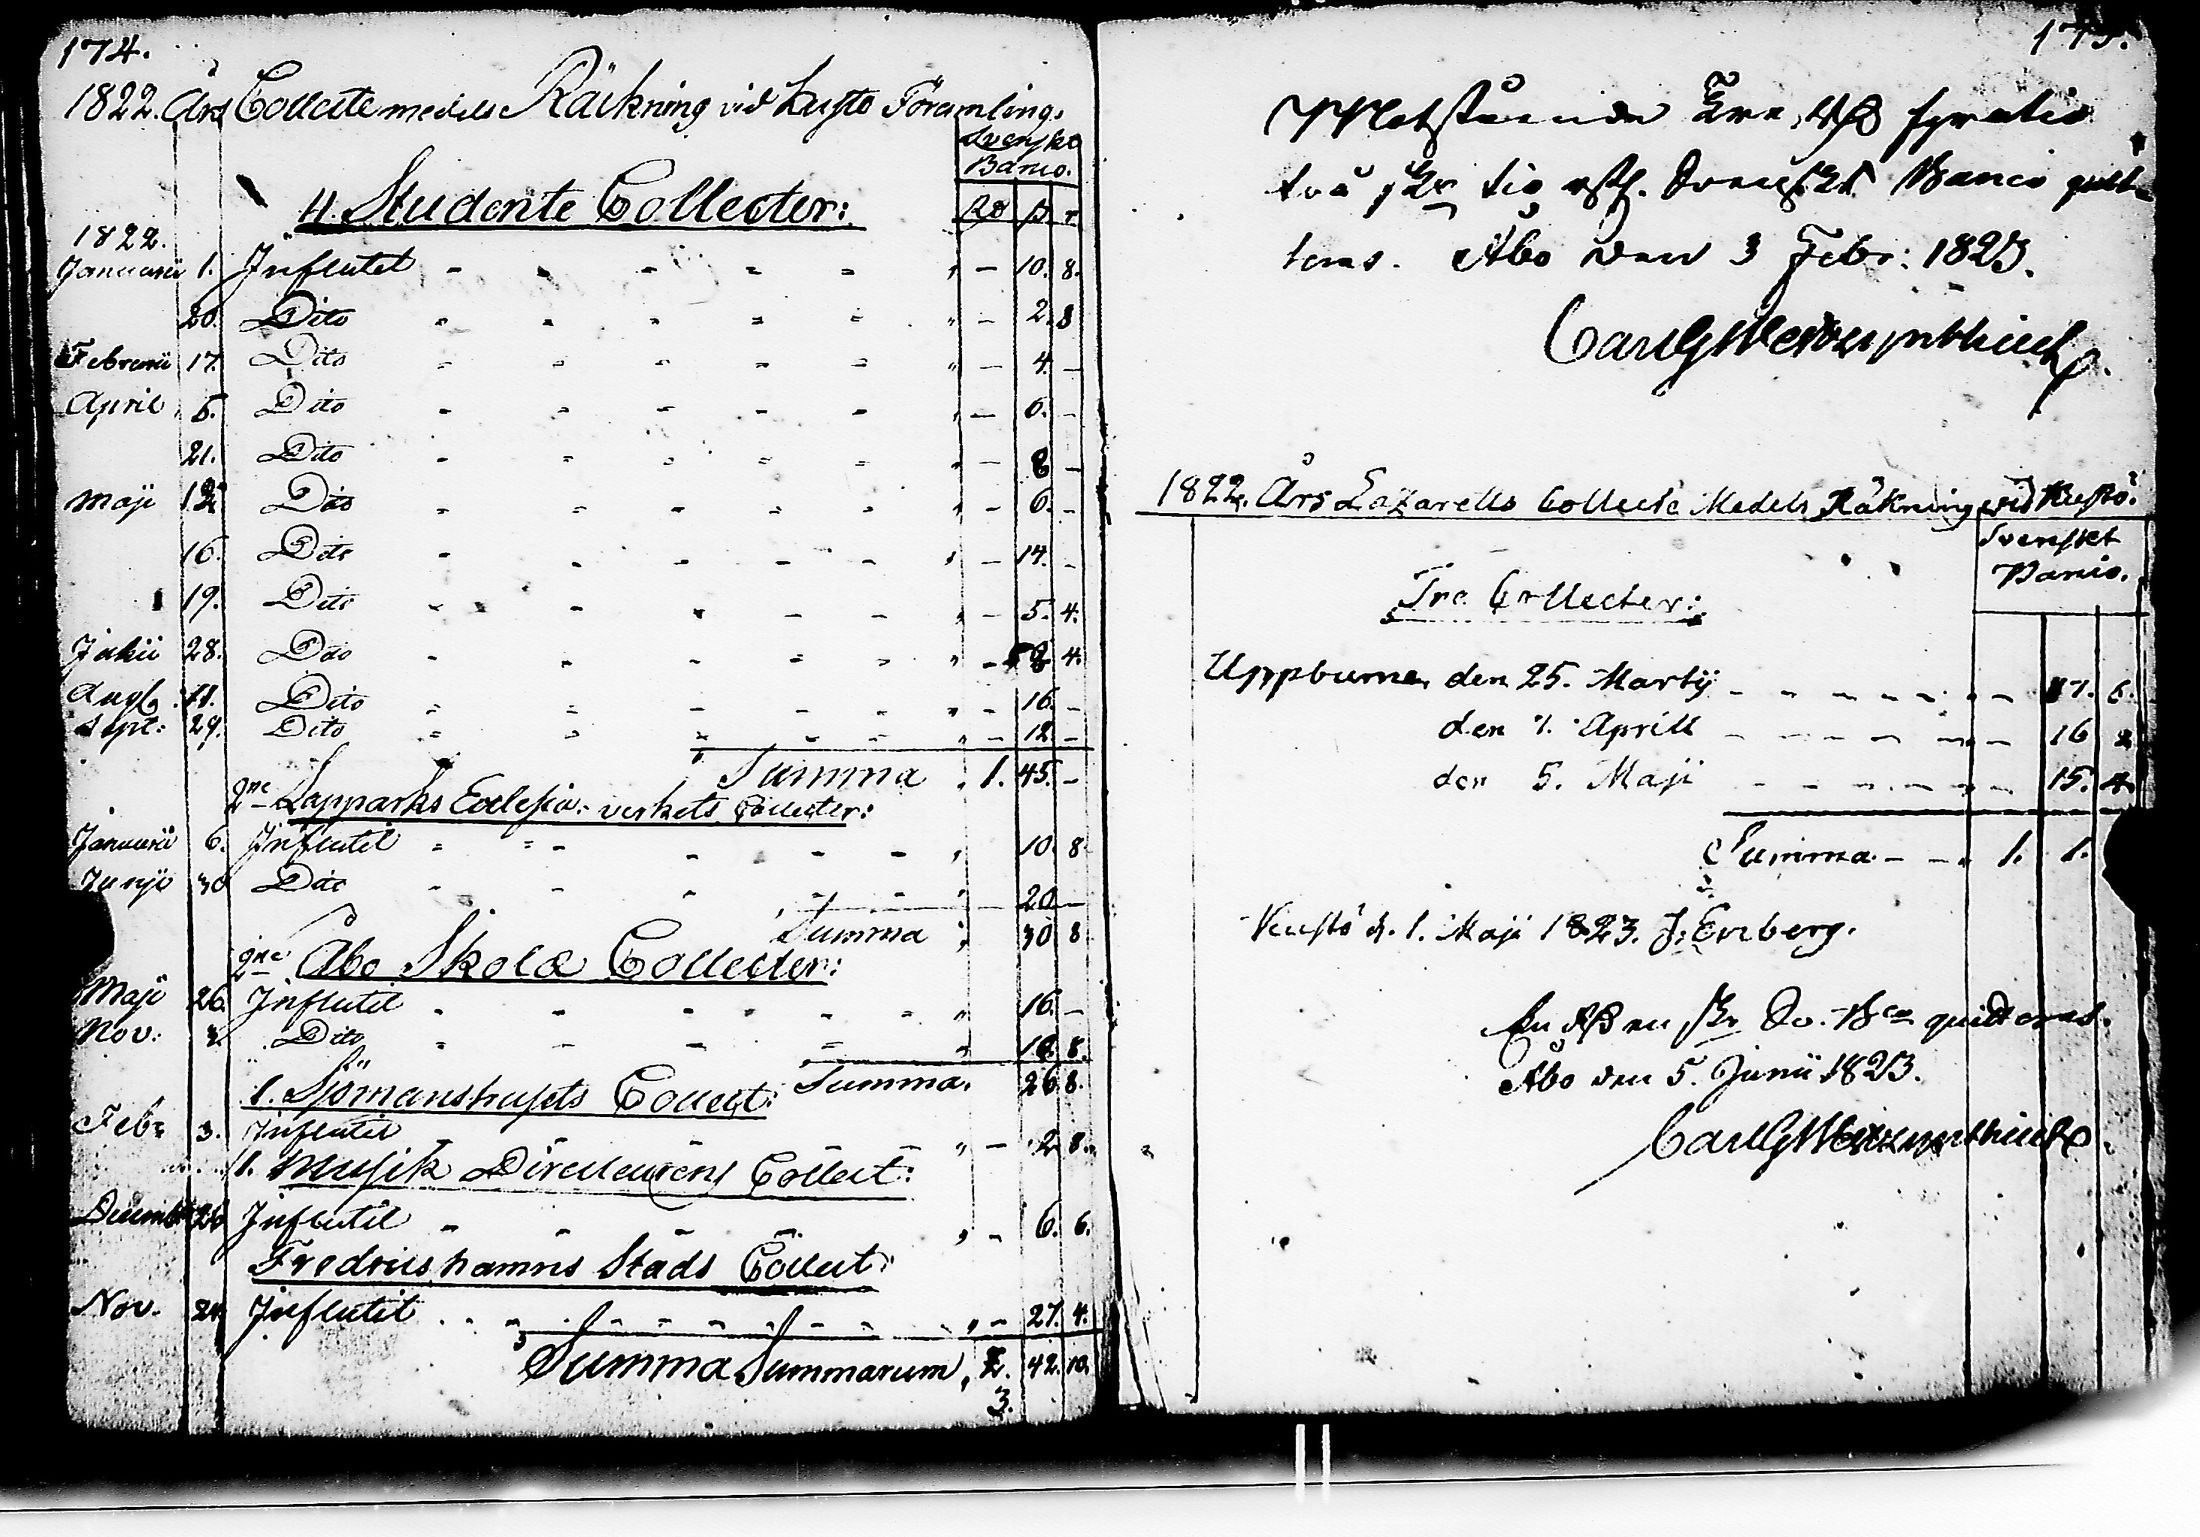 174.
1822. Års Collecte medels Räkning vid Kustö Församling.
Svenskt
Banco.
11. Studente Collecter:
Rd ß r
1822.
Januarii 1. Influtit " — 10. 8.
20. Dito " — 2. 8
Februarii 17. Dito " — 4. —
April 5. Dito " — 6. —
21. Dito " — 8 —
Maji 12 Dito " — 6. —
16. Dito " — 14. —
19. Dito " — 5. 4.
28. Dito " — 8 4.
Aug. 11. Dito " — 16. —
Sept: 29. Dito " — 12. —
Summa 1. 45. —
2ne Lappmarks Ecclesia: verkets Collecter:
Januarii 6. Influtit " 10. 8.
Junii 30 Dito " 20. —
Summa " 30 8
2ne Åbo Skola Collecter:
Maji 26. Influtit " 16. —
Nov: Dito " 10 8.
Summa. 26. 8.
1. Sjömanshusets Collect:
Febr 3. Influtit " — 2. 8.
1. Musik Directeurens Collect:
Decemb: 26 Influtit " — 6. 6.
Fredricshamns Stads Collect:
Nov. 24 Influtit " — 27. 4.
Summa Summarum, 42. 10.
3.
175.
Motstående Tre Rd fyratio
två sk tio rst. Svenskt Banco quit-
teras. Åbo den 3 Febr: 1823.
1822. Års Lazaretts Collecte Medels Räkning vid Kustö.
Svenskt
Banco.
Tre Collecter:
Uppburne den 25. Martij 17. 6.
den Aprill 16 2
den 5. Maji 15. 4.
Summa. 1. 1.
Kustö d. 1. Maji 1823. J: Enberg.
En Rd en sk Sv. Bco quitteras.
Åbo den 5. Junii 1823.